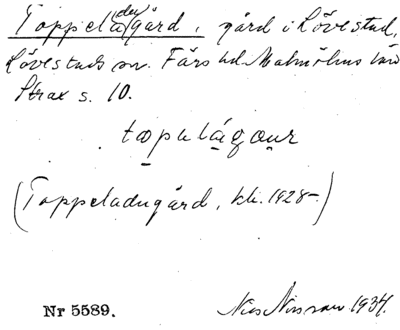 Toppela(du)gård, gård i Lövestad,
Lövestads sn. Färs hd. Malmöhus län
Strax s. 10.
topulágour
(Toppeladugård, kb. 1928-)
Nr 5589.
Nils Nilsson 1934.